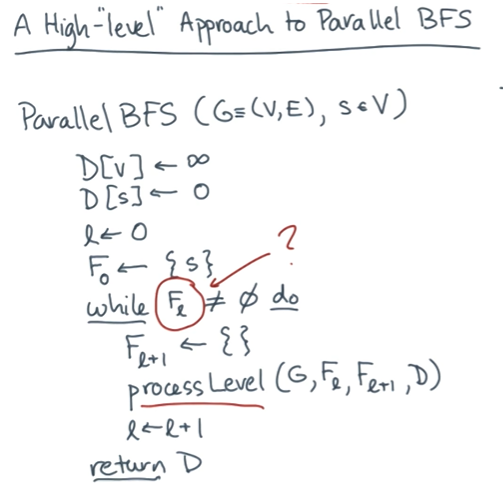 A High-"level" Approach to Parallel BFS
Parallel BFS (G≡(V,E), s∈V)
D[v] ← ∞
D[s] ← 0
l ← 0
F₀ ← {s}
?
while Fₗ ≠ ∅ do
Fₗ₊₁ ← {}
process Level (G, Fₗ, Fₗ₊₁, D)
l ← l+1
return D